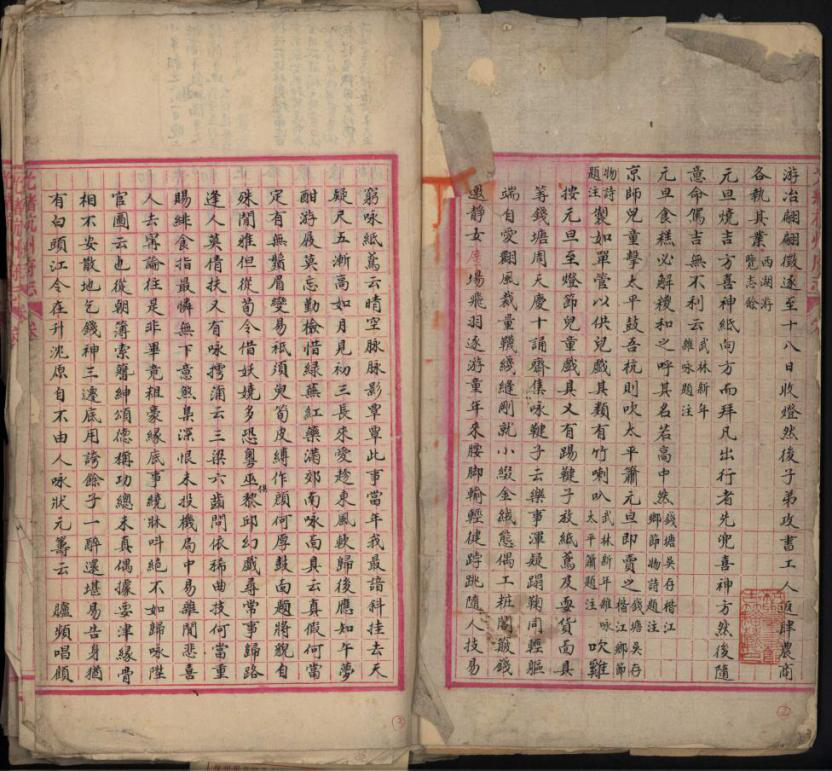 游冶翩翩徵逐至十八日收燈然後子弟攻書工人返肆農商
各執其業西湖游覽志餘
元旦燒吉方喜神紙向方而拜凡出行者先兜喜神方然後隨
意命駕吉無不利云武林新年雜咏題注
元旦食糕必解糉和之呼其名若高中然錢塘吳存楷江鄉節物詩題注
京師兒童擊太平鼓吾杭則吹太平簫元旦即賣之錢塘吳存楷江鄉節
物詩題注製如單管以供兒戲其類有竹喇叭武林新年雜咏太平簫題注吹雞
按元旦至燈節兒童戲具又有踢鞬子放紙鳶及耍貨面具
等錢塘周天慶十誦齋集咏鞬子云樂事渾疑蹋鞠同輕軀
端自愛翻風裁量韈綫縫剛就小綴金絨態偶工粧閣敲錢
邀靜女塲飛羽逐游童年來腰脚輸輕健踔跳隨人技易
窮咏紙鳶云晴空脉脉影罩罩此事當年我最諳斜挂去天
疑尺五漸高如月見初三長來愛趁東風軟歸後應知午夢
酣游屐莫忘勤檢惜綠蕪紅藥滿郊南咏面具云真假何當
定有無鬚眉變易秖須臾筍皮縛作顏何厚鼓面題將貌自
殊閒雅但從荀令借妖嬈多恐粵巫黎邱幻戲尋常事歸路
逢人莫倩扶又有咏摴蒲云三梁六齒問依稀曲技何當重
賜緋食指最憐無下意煞臬深恨未投機局中易離閒悲喜
人去甯論往是非畢竟粗豪緣底事繞牀叫絕不如歸咏陞
官圖云也從朝簿索簪紳頌德稱功總未真偶據要津緣骨
相不安散地乞錢神三遷底用誇餘子一醉還堪易告身猶
有白頭江令在升沈原自不由人咏狀元籌云臚頻唱頎
三